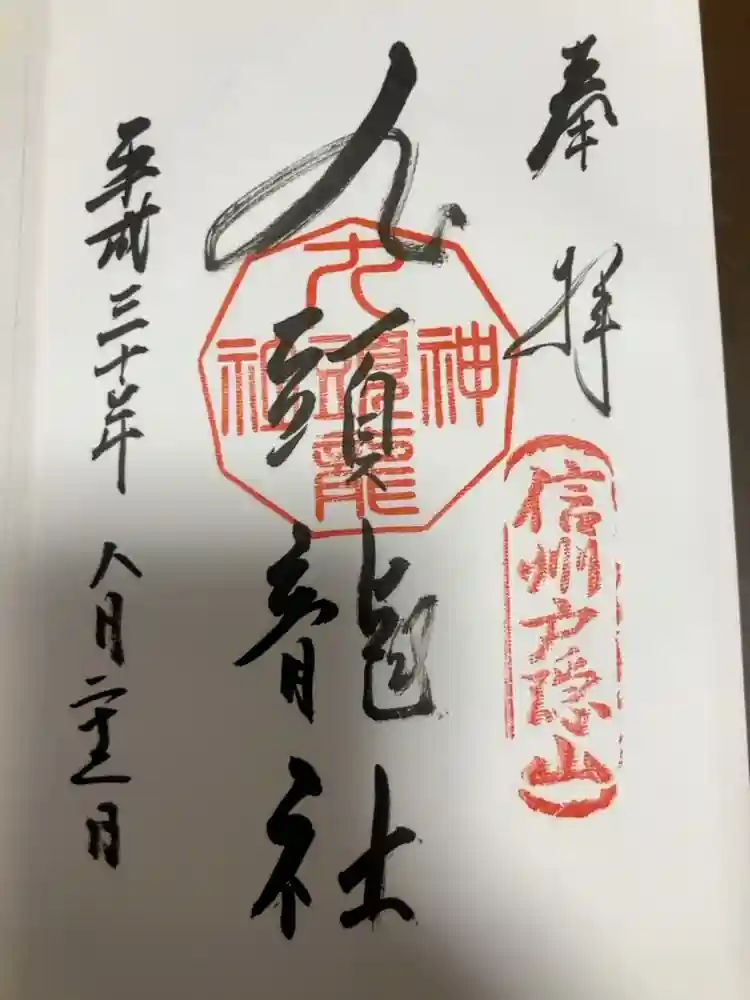 奉拝
信州戸隠山
九頭龍社
九頭龍神社
平成三十年八月二十三日